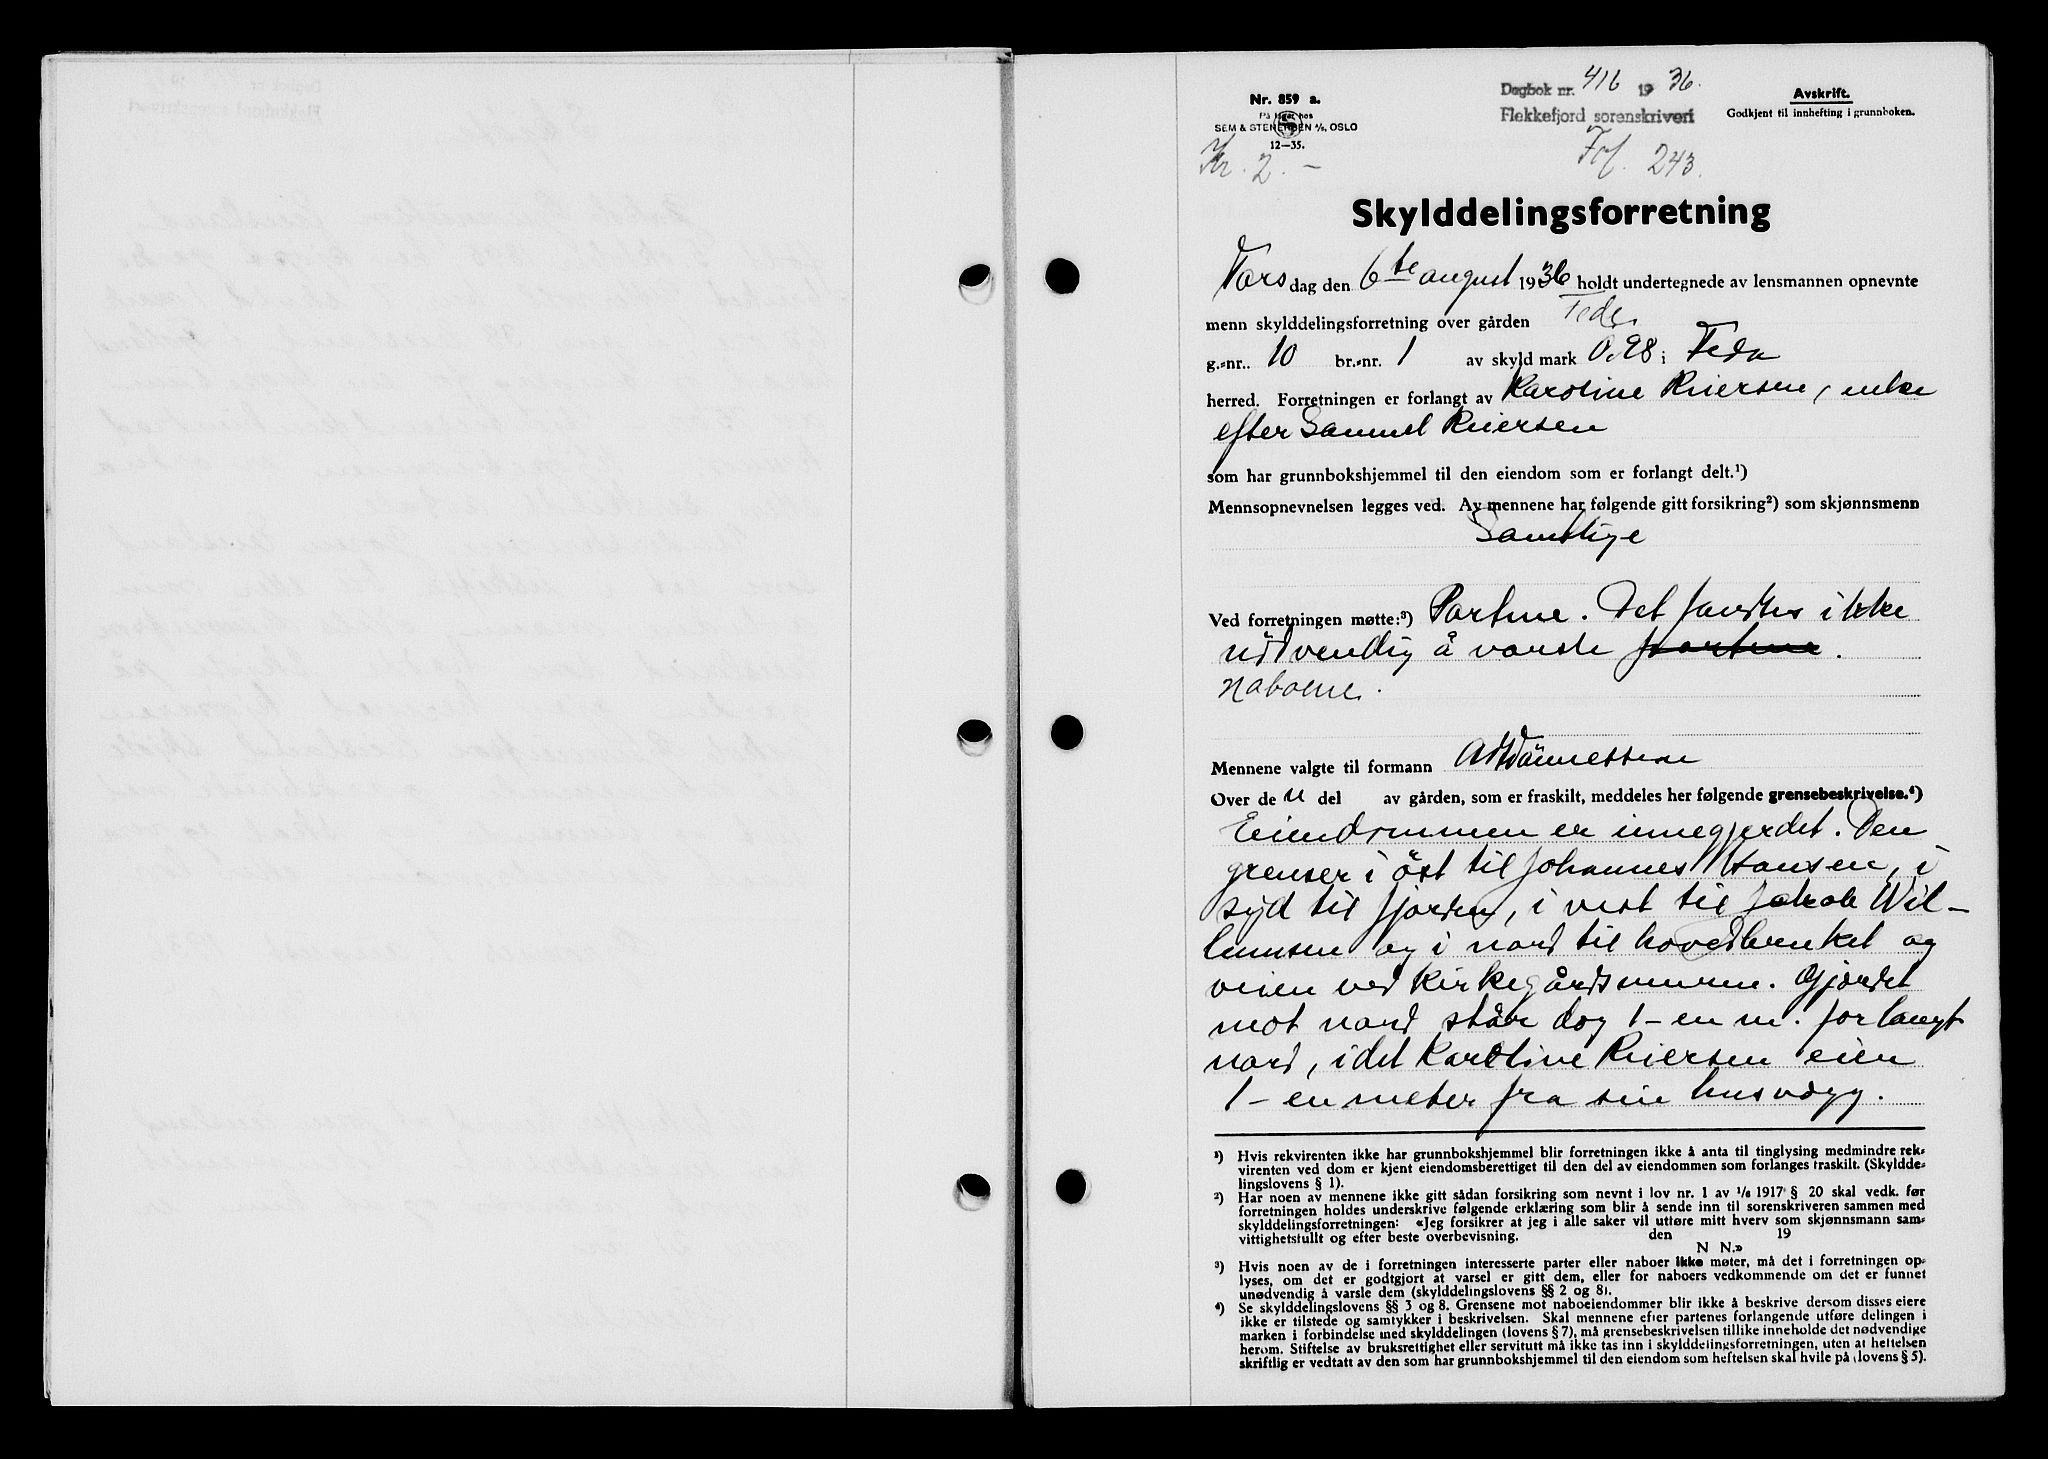 Nr. 859 a.
På lager hos
SEM & STENERSEN A/S, OSLO
12—35.
Dagbok nr. 416 1936.
Flekkefjord sorenskriveri
Avskrift.
Godkjent til innhefting i grunnboken.
Kr. 2.—
Fol. 243.
Skylddelingsforretning
Torsdag den 6te august 1936 holdt undertegnede av lensmannen opnevnte
menn skylddelingsforretning over gården Feda
g.-nr.. 10 br.-nr. 1 av skyld mark 0,98 i Feda
herred. Forretningen er forlangt av Karoline Reiersen, enke
efter Samuel Reiersen
som har grunnbokshjemmel til den eiendom som er forlangt delt.¹)
Mennsopnevnelsen legges ved. Av mennene har følgende gitt forsikring²) som skjønnsmenn
Samtlige
Ved forretningen møtte:³) Partene. Det fandtes ikke
nödvendig å varsle partene.
Naboene.
Mennene valgte til formann
Over den del av gården, som er fraskilt, meddeles her følgende grensebeskrivelse.⁴)
Eiendommen er innegjerdet. Den
grenser i öst til Johannes Hansen, i
syd til fjorden, i vest til Jakob Wil-
lumsen og i nord til hovedbruket og
veien ved Kirkegårdsmuren. Gjerdet
mot nord står dog 1-en m. for langt
nord, idet Karoline Reiersen eier
1-en meter fra sin husvegg.
¹) Hvis rekvirenten ikke har grunnbokshjemmel blir forretningen ikke å anta til tinglysing medmindre rek-
virenten ved dom er kjent eiendomsberettiget til den del av eiendommen som forlanges fraskilt. (Skyldde-
lingslovens § 1).
²) Har noen av mennene ikke gitt sådan forsikring som nevnt i lov nr. 1 av ¹/₆ 1917 § 20 skal vedk. før
forretningen holdes underskrive følgende erklæring som blir å sende inn til sorenskriveren sammen med
skylddelingsforretningen: «Jeg forsikrer at jeg i alle saker vil utføre mitt hverv som skjønnsmann sam-
vittighetsfullt og efter beste overbevisning. den 19
N N.»
³) Hvis noen av de i forretningen interesserte parter eller naboer ikke møter, må det i forretningen op-
lyses, om det er godtgjort at varsel er gitt dem, eller for naboers vedkommende om det er funnet
unødvendig å varsle dem (skylddelingslovens §§ 2 og 8).
⁴) Se skylddelingslovens §§ 3 og 8. Grensene mot naboeiendommer blir ikke å beskrive dersom disses eiere
ikke er tilstede og samtykker i beskrivelsen. Skal mennene efter partenes forlangende utføre delingen i
marken i forbindelse med skylddelingen (lovens § 7), må grensebeskrivelsen tillike inneholde det nødvendige
herom. Stiftelse av bruksrettighet eller servitutt må ikke tas inn i skylddelingsforretningen, uten at heftelsen
skriftlig er vedtatt av den som har grunnbokshjemmel til den eiendom som heftelsen skal hvile på (lovens § 5).